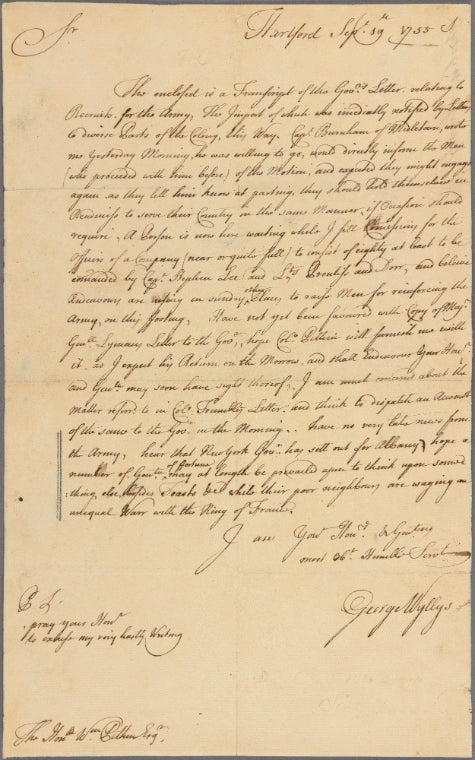 Sr
Hartford Septr 19th 1755
The enclosed is a Transcript of the Govrs Letter relating to
Recruits for the Army, The Import of which was imediatly notified by Letters
to diverse Parts of the Colony, this Way. Capt Burnham of Midletown, wrote
me Yesterday Morning, he was willing to go, would directly inform the Men
(who proceeded with him before) of this Motion, and expected they might engage
again as they told him know at parting, they should hold themselves in
Readiness to serve their Country in the same Manner, if Occasion should
require. A Person is now here waiting while I fill Comissions for the
Officers of a Company (near or quite full) to consist of eighty at least to be
comanded by Capt Stephen Lee and Lts and Dorr, and believe
Endeavours are using in sundry other Places, to raise Men for reinforcing the
Army, on this footing, Have not yet been favoured with Copy of Majr
Genll Lymans Letter to the Govr, hope Colo Pitkin will furnish me with
it, as I expect his Return on the Morrow, and shall Endeavour Your Honr
and Gentn may soon have sight thereof, I am much concerned about the
matter referd to in Colo Trumbles Letter, and think to dispatch an Account
of the same to the Govr in the Morning. have no very late news from
the Army, hear that New York Govr has sett out for Albany, hope a
number of Gentn of fortune may at length be prevailed upon to think upon some
thing else besides Toasts &c while their poor neighbours are waging an
unequal Warr with the King of France.
I am Your Honrs & Gentns
most Obt Humble Servt
George Wyllys
P S.
pray your Honr
to excuse my very hasty Writing
The Honble Wm Pitkin Esqr